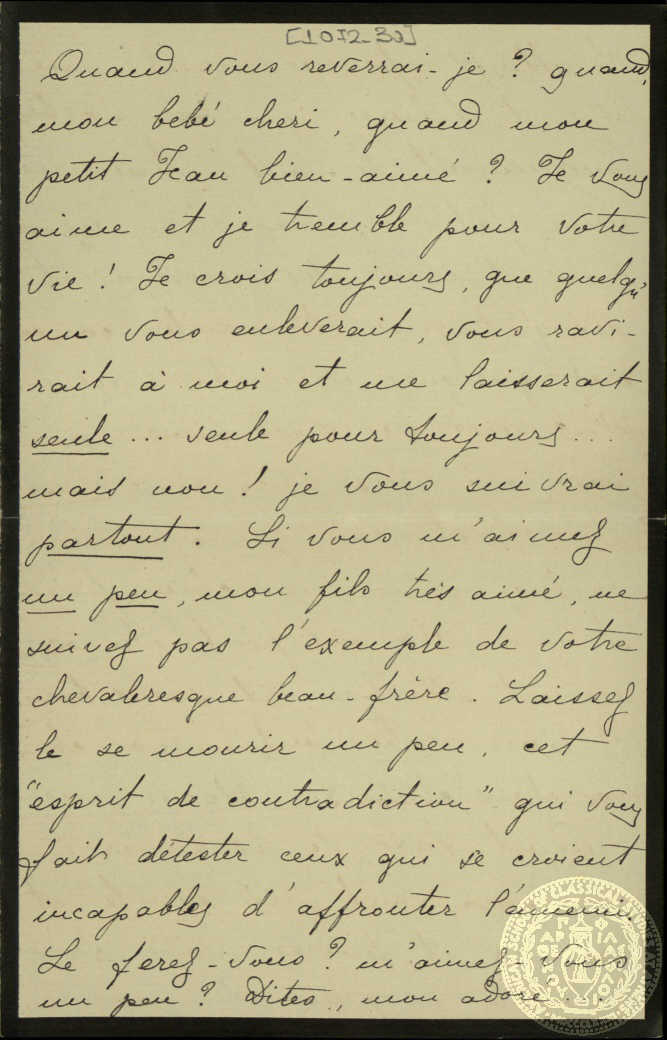 [1072-30]
Quand vous reverrai-je ? quand,
mon bébé cheri, quand mon
petit Jean bien-aimé ? Je vous
aime et je tremble pour votre
vie ! Je crois toujours, que quelqu'
un vous enleverait, vous ravi-
rait à moi et me laisserait
seule ... seule pour toujours ...
mais non ! je vous suivrai
partout. Si vous m'aimez
un peu, mon fils très aimé, ne
suivez pas l'exemple de votre
chevaleresque beau-frère. Laissez
le se mourir un peu, cet
"esprit de contradiction" qui vous
fait détester ceux qui se croient
incapables d'affronter l'ennemi.
Le ferez-vous ? m'aimez-vous
un peu ? Dites, mon adoré ...